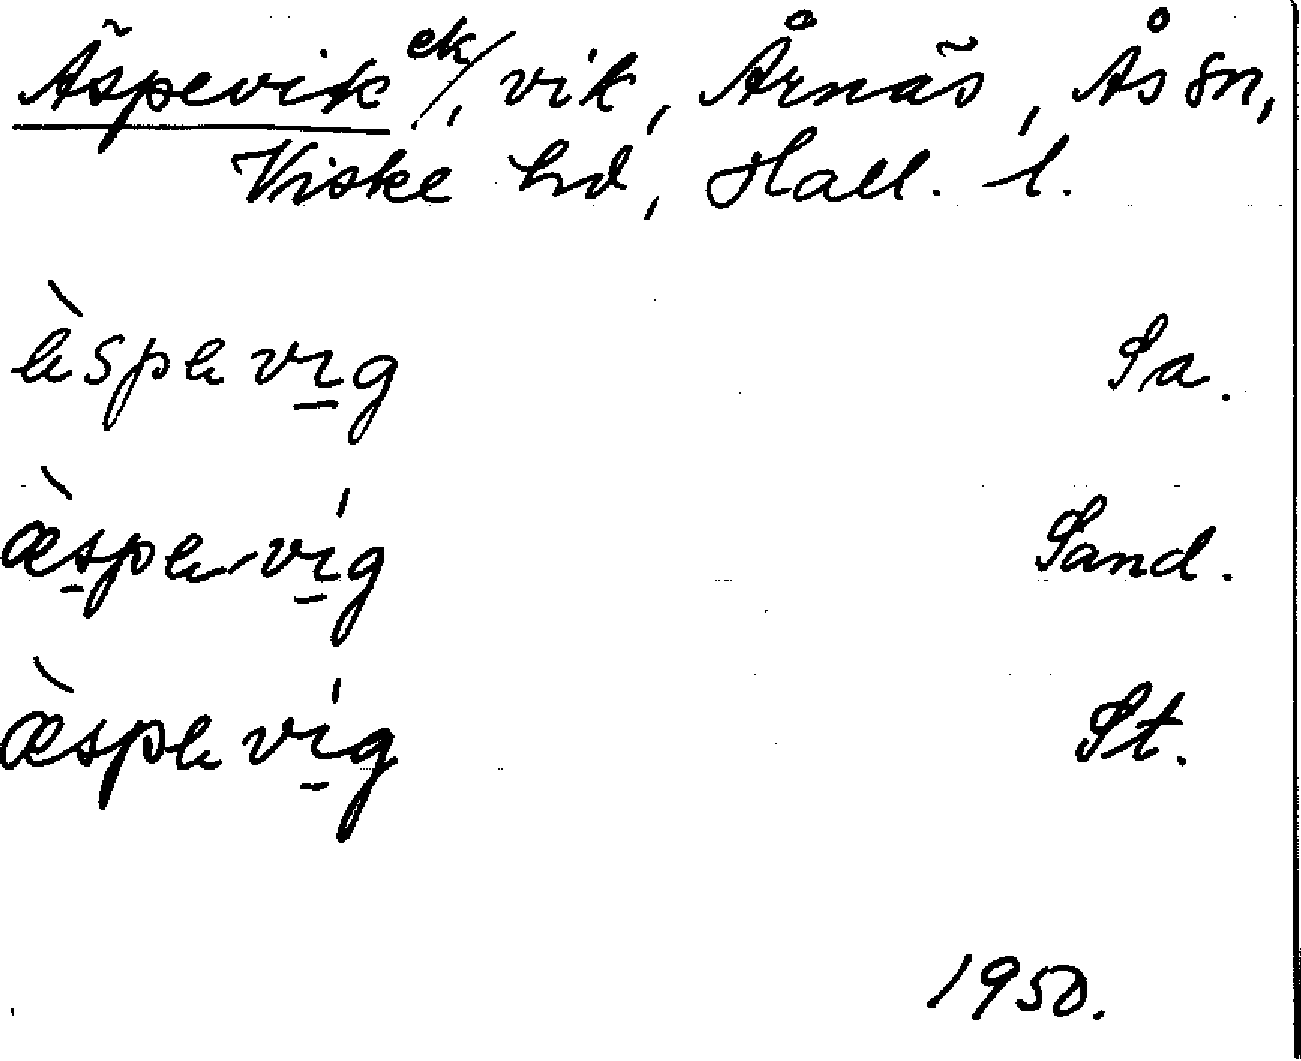 Äspevik ek/, vik, Årnäs, Ås sn,
Viske hd, Hall. l.
æ̀spevig Sa.
æ̀spevíg Sand.
æ̀spevíg St.
1950.